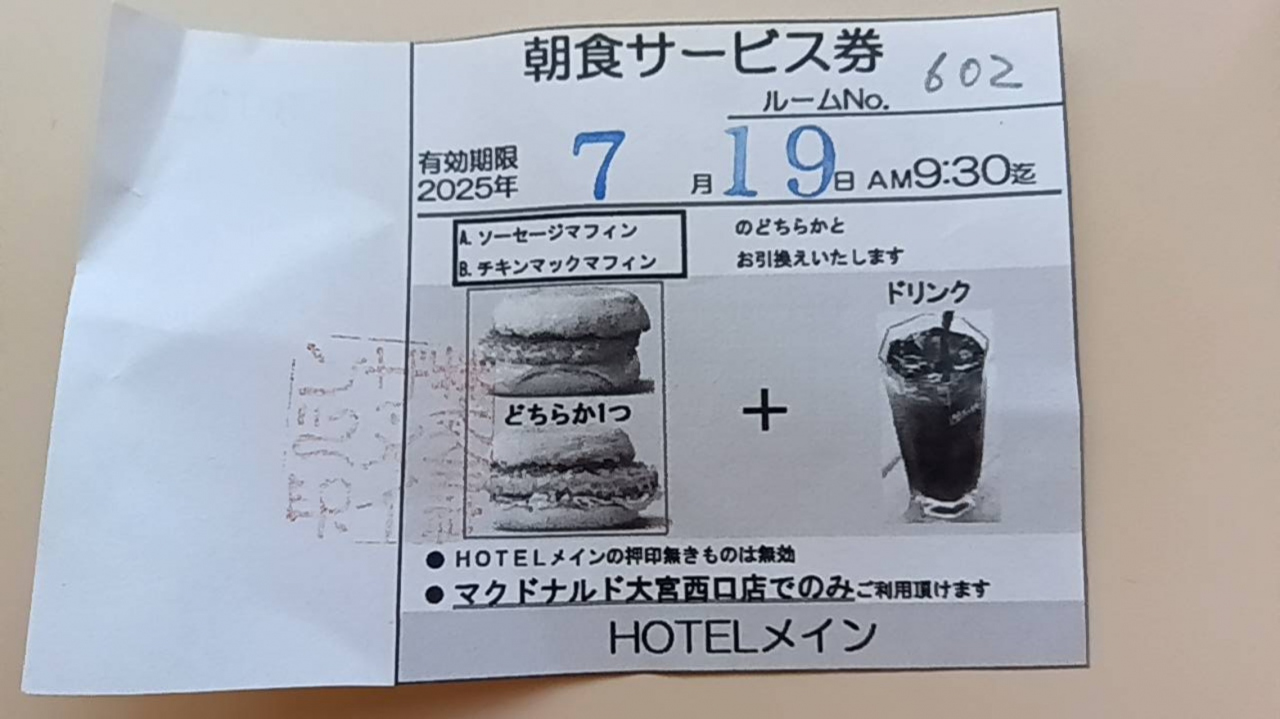 朝食サービス券
602
ルームNo.
有効期限
2025年 7月19日 AM9:30迄
A.ソーセージマフィン
B.チキンマックマフィン
のどちらかと
お引換えいたします
ドリンク
どちらか1つ
+
●HOTELメインの押印無きものは無効
●マクドナルド大宮西口店でのみご利用頂けます
HOTELメイン